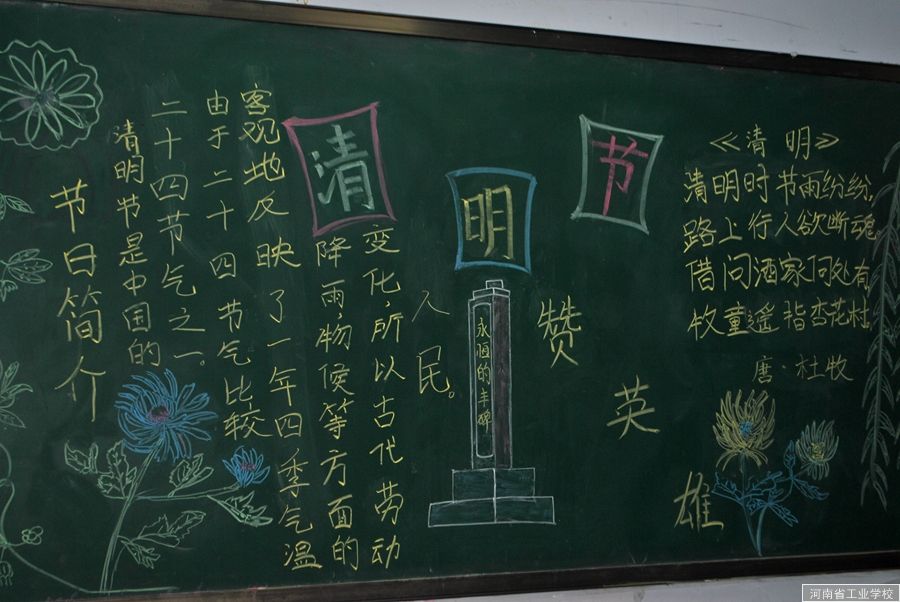 清明节
节日简介
清明节是中国的
二十四节气之一。
由于二十四节气比较
客观地反映了一年四季气温
降雨,物候等方面的
变化,所以古代劳动
人民。
永恒的丰碑
赞英雄
《清明》
清明时节雨纷纷,
路上行人欲断魂
借问酒家何处有
牧童遥指杏花村
唐·杜牧
河南省工业学校